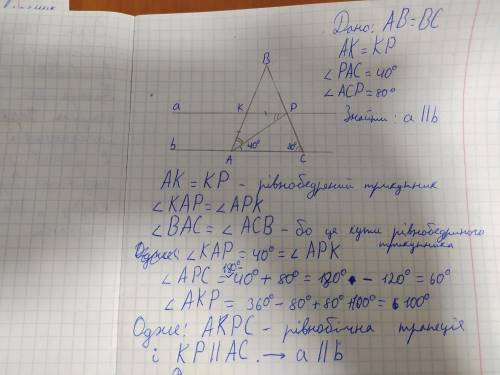 Дано: AB=BC
AK=KP
∠PAC=40°
∠ACP=80°
Знайти: a||b
B
a K P
b A 40° 80° C
AK=KP - рівнобедрений трикутник
∠KAP=∠APK
∠BAC=∠ACB - бо це кути рівнобедреного
трикутника
Одже: ∠KAP=40°=∠APK
180°
∠APC=40°+80°=120° - 120°=60°
∠AKP=360°-80°+80°+100°=100°
Одже: AKPC - рівнобічна трапеція
і KP||AC. → a||b